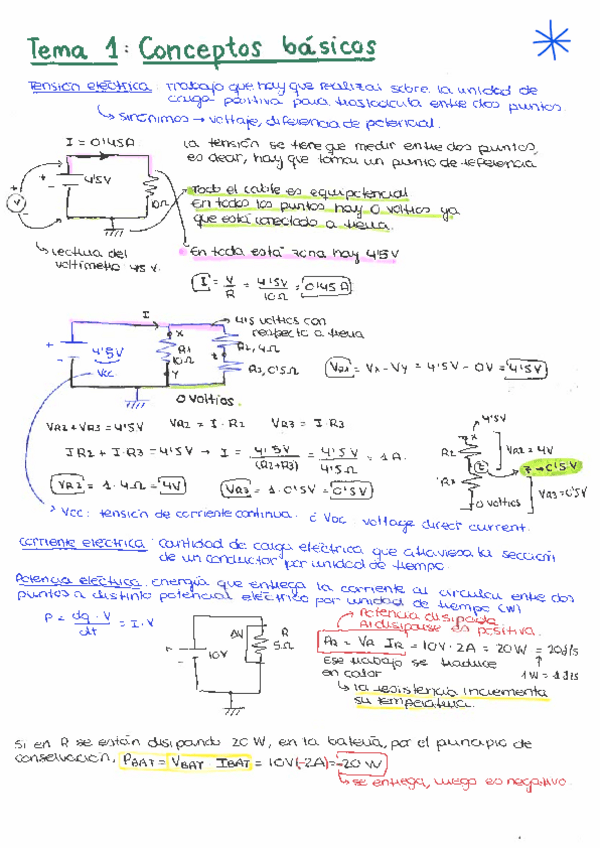 Tema 1: Conceptos básicos
Tensión eléctrica: Trabajo que hay que realizar sobre la unidad de
carga positiva para trasladarla entre dos puntos.
↳ sinónimos → voltaje, diferencia de potencial.
I = 0'45A
La tensión se tiene que medir entre dos puntos,
es decir, hay que tomar un punto de referencia
+
-
V
4'5V
10Ω
Todo el cable es equipotencial
En todos los puntos hay 0 voltios ya
que está conectado a tierra.
↳ Lectura del
voltímetro 4'5 V.
En toda esta zona hay 4'5V
I = V/R = 4'5V/10Ω = 0'45A
I
4'5 voltios con
respecto a tierra
+
-
4'5V
Vcc
x
R1
10Ω
y
R2, 4Ω
z
R3, 0'5Ω
VR1 = Vx - Vy = 4'5V - 0V = 4'5V
0 voltios.
VR2 + VR3 = 4'5V VR2 = I · R2 VR3 = I · R3
IR2 + I·R3 = 4'5V → I = 4'5V/(R2+R3) = 4'5V/4'5Ω = 1A.
VR2 = 1 · 4Ω = 4V VR3 = 1 · 0'5V = 0'5V
4'5V
x
R2
VR2 = 4V
z
z → 0'5V
R3
VR3 = 0'5V
0 voltios
Vcc: tensión de corriente continua. Vdc: voltage direct current.
Corriente eléctrica: cantidad de carga eléctrica que atraviesa la sección
de un conductor por unidad de tiempo.
Potencia eléctrica: energía que entrega la corriente al circular entre dos
puntos a distinto potencial eléctrico por unidad de tiempo (W)
P = dq · V/dt = I · V
+
-
10V
R
5Ω
Potencia disipada
Al disiparse es positiva.
PR = VR IR = 10V · 2A = 20W = 20J/s
1W = 1J/s
Ese trabajo se traduce
en calor
↳ la resistencia incrementa
su temperatura.
Si en R se están disipando 20 W, en la batería, por el principio de
conservación, PBAT = VBAT · IBAT = 10V(-2A) = -20 W
↳ se entrega, luego es negativo.